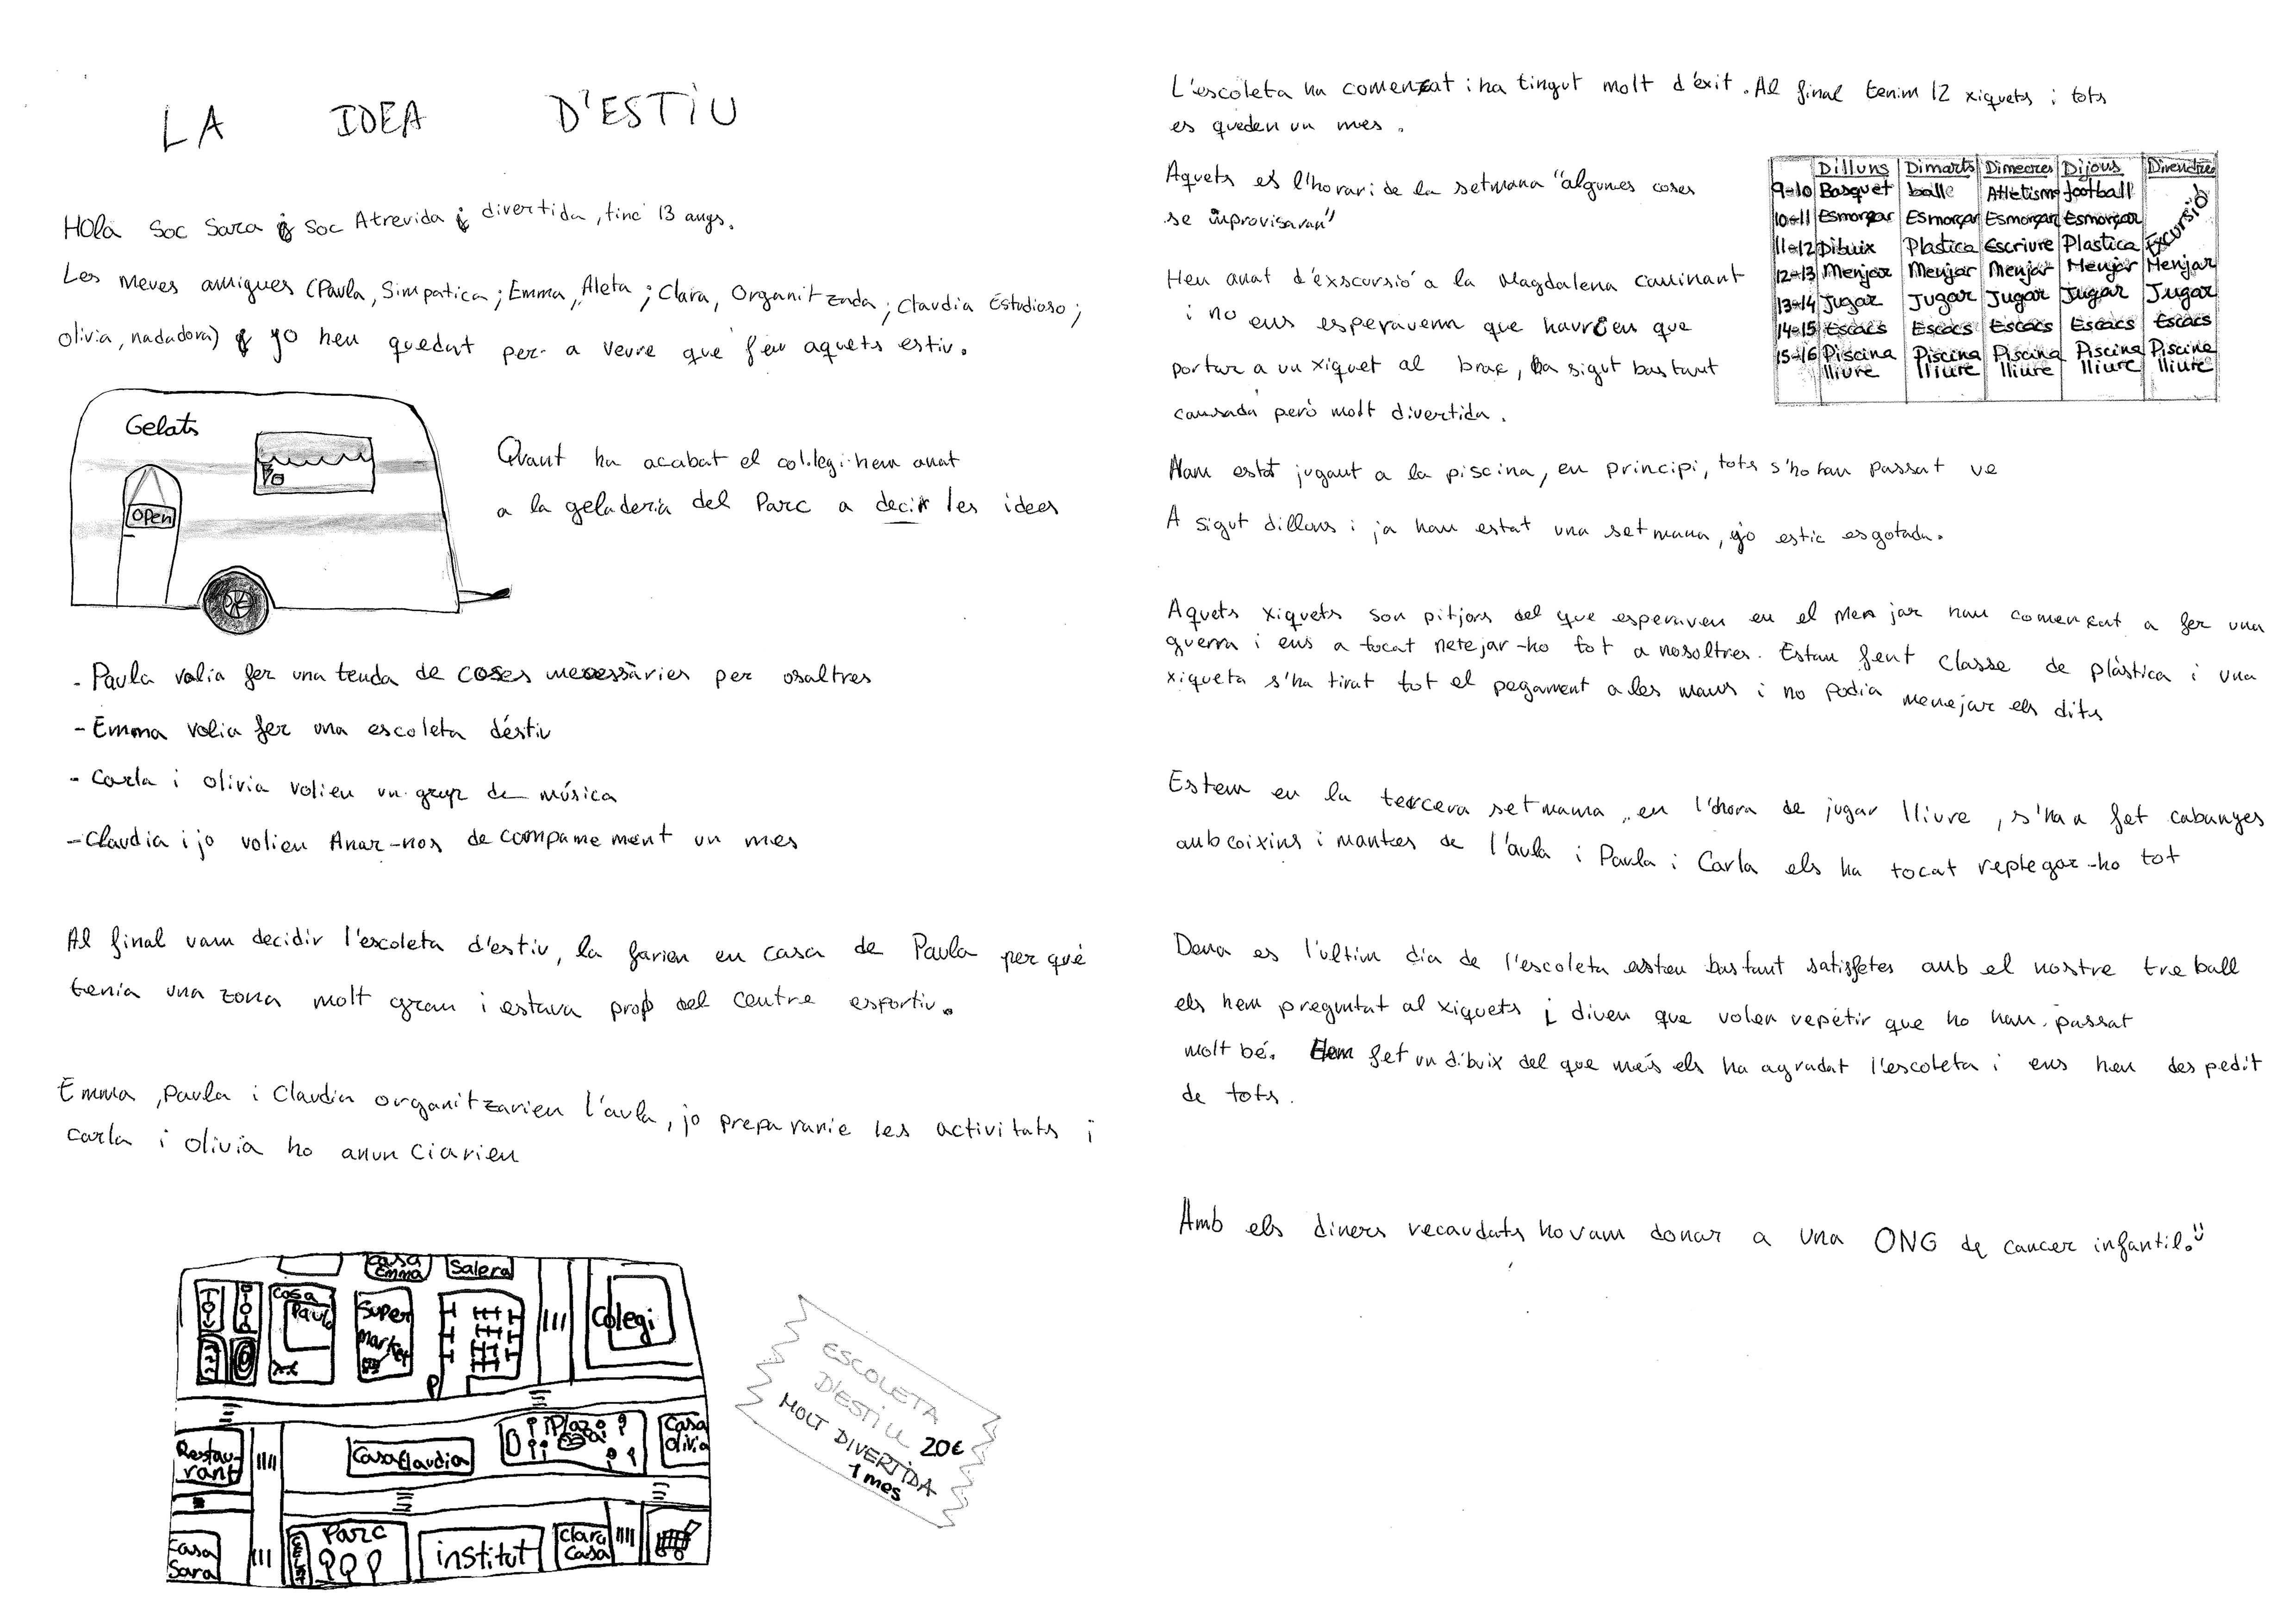 LA IDEA D'ESTIU
HOla Soc Sara i Soc Atrevida i divertida, tinc 13 anys.
Les meves amigues (Paula, Simpatica; Emma, Aleta; Clara, Organitzada; Claudia Estudioso;
olivia, nadadora) i yo heu quedat per a veure que feu aquets estiu.
Gelats
Open
Quant ha acabat el col.legi hem anat
a la geladeria del Parc a decir les idees
- Paula volia fer una tenda de coses necessàries per osaltres
- Emma volia fer una escoleta d'éstiu
- Carla i olivia volieu un grup de música
- Claudia i jo volieu Anar-nos de campamement un mes
Al final vam decidir l'escoleta d'estiu, la farien en casa de Paula perquè
tenia una zona molt gran i estava prop del centre esportiu.
Emma, Paula i Claudia organitzarien l'aula, jo prepararie les activitats i
carla i olivia ho anunciarien
Casa Emma
Salera
Casa Paula
Super market
Colegi
Restau-
rant
Casa Claudia
Plaza
Casa olivia
Casa
Sara
Parc
institut
Clara
Casa
ESCOLETA
D'ESTIU
MOLT DIVERTIDA
20€
1 mes
L'escoleta ha comenzat i ha tingut molt d'éxit. Al final tenim 12 xiquets i tots
es queden un mes.
Aquets es l'horari de la setmana "algunes coses
se improvisaran"
Dilluns Dimarts Dimecres Dijous Divendres
9-10 Basquet balle Atletisme football Excursió
10-11 Esmorçar Esmorçar Esmorçar Esmorçar
11-12 Dibuix Plastica Escriure Plastica
12-13 Menjar Menjar Menjar Menjar Menjar
13-14 Jugar Jugar Jugar Jugar Jugar
14-15 Escacs Escacs Escacs Escacs Escacs
15-16 Piscina Piscina Piscina Piscina Piscina
lliure lliure lliure lliure lliure
Heu anat d'éxscursió a la Magdalena caminant
i no ens esperavem que hauríeu que
portar a un xiquet al braç, ha sigut bastant
cansada però molt divertida.
Ham estat jugant a la piscina, en principi, tots s'ho han passat ve
A sigut dilluns i ja hau estat una setmana, yo estic esgotada.
Aquets xiquets son pitjors del que esperaveu en el Menjar hau començat a fer una
guerra i ens a tocat netejar-ho tot a nosoltres. Estan fent classe de plàstica i una
xiqueta s'ha tirat tot el pegament a les mans i no podia menejar els dits
Estem en la tercera setmana, en l'hora de jugar lliure, s'han fet cabanyes
amb coixins i mantes de l'aula i Paula i Carla els ha tocat replegar-ho tot
Dema es l'ultim dia de l'escoleta esteu bastant satisfetes amb el nostre treball
els hem preguntat al xiquets i diuen que volen repetir que ho han passat
molt bé. Hem fet un dibuix del que més els ha agradat l'escoleta i ens heu despedit
de tots.
Amb els diners recaudats ho vam donar a una ONG de cancer infantil.